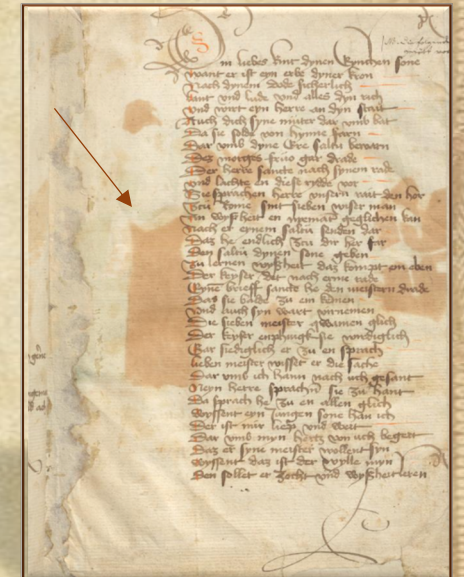 S in liebes kint dynen Eynichen sone
want er ist eyn erbe dyner kron
Nach dynem dode sicherlich
lant vnd lude vnd alles dyn rich
vnd wirt eyn herre an dyn stait
Auch dich syne muter dar vmb bat
Da sie solde von hynne farn
Dar vmb dyne Ere saltu bewarn
Des morges fruo gar drade
Der herre sante nach synem rade
vnd lachte en diese rydde vor
Sie sprachen herre vnsern rait den hor
zcu Rome sint sieben wiser man
An wyßheit en nyemat geglichen kan
Nach er eynem saltu senden dar
Daz he endlich zcu dir her far
Den saltu dynen sone geben
zu lernen wyßheit daz kompt en eben
Der keyser det nach erme rade
Syne brieff sante he den meistern drade
Daz sie balde zu em kemen
Und auch syn wart vornemen
Die sieben meister qwamen glich
Der keyser enphyngk sie wirdiglich
Gar frediglich er zu en sprach
lieben meister wisset er die sache
Dar vmb ich hann nach uch gesant
Neyn herre sprachin sie zu hant
Da sprach he zu en allen glich
wyssent eyn jungen sone han ich
Der ist mir liep vnd wert
Dar vmb myn hertz von uch begert
Daz er syne meister wollent syn
wyssent daz ist der wylle myn
Den sollet er zocht vnd wyßheit leren